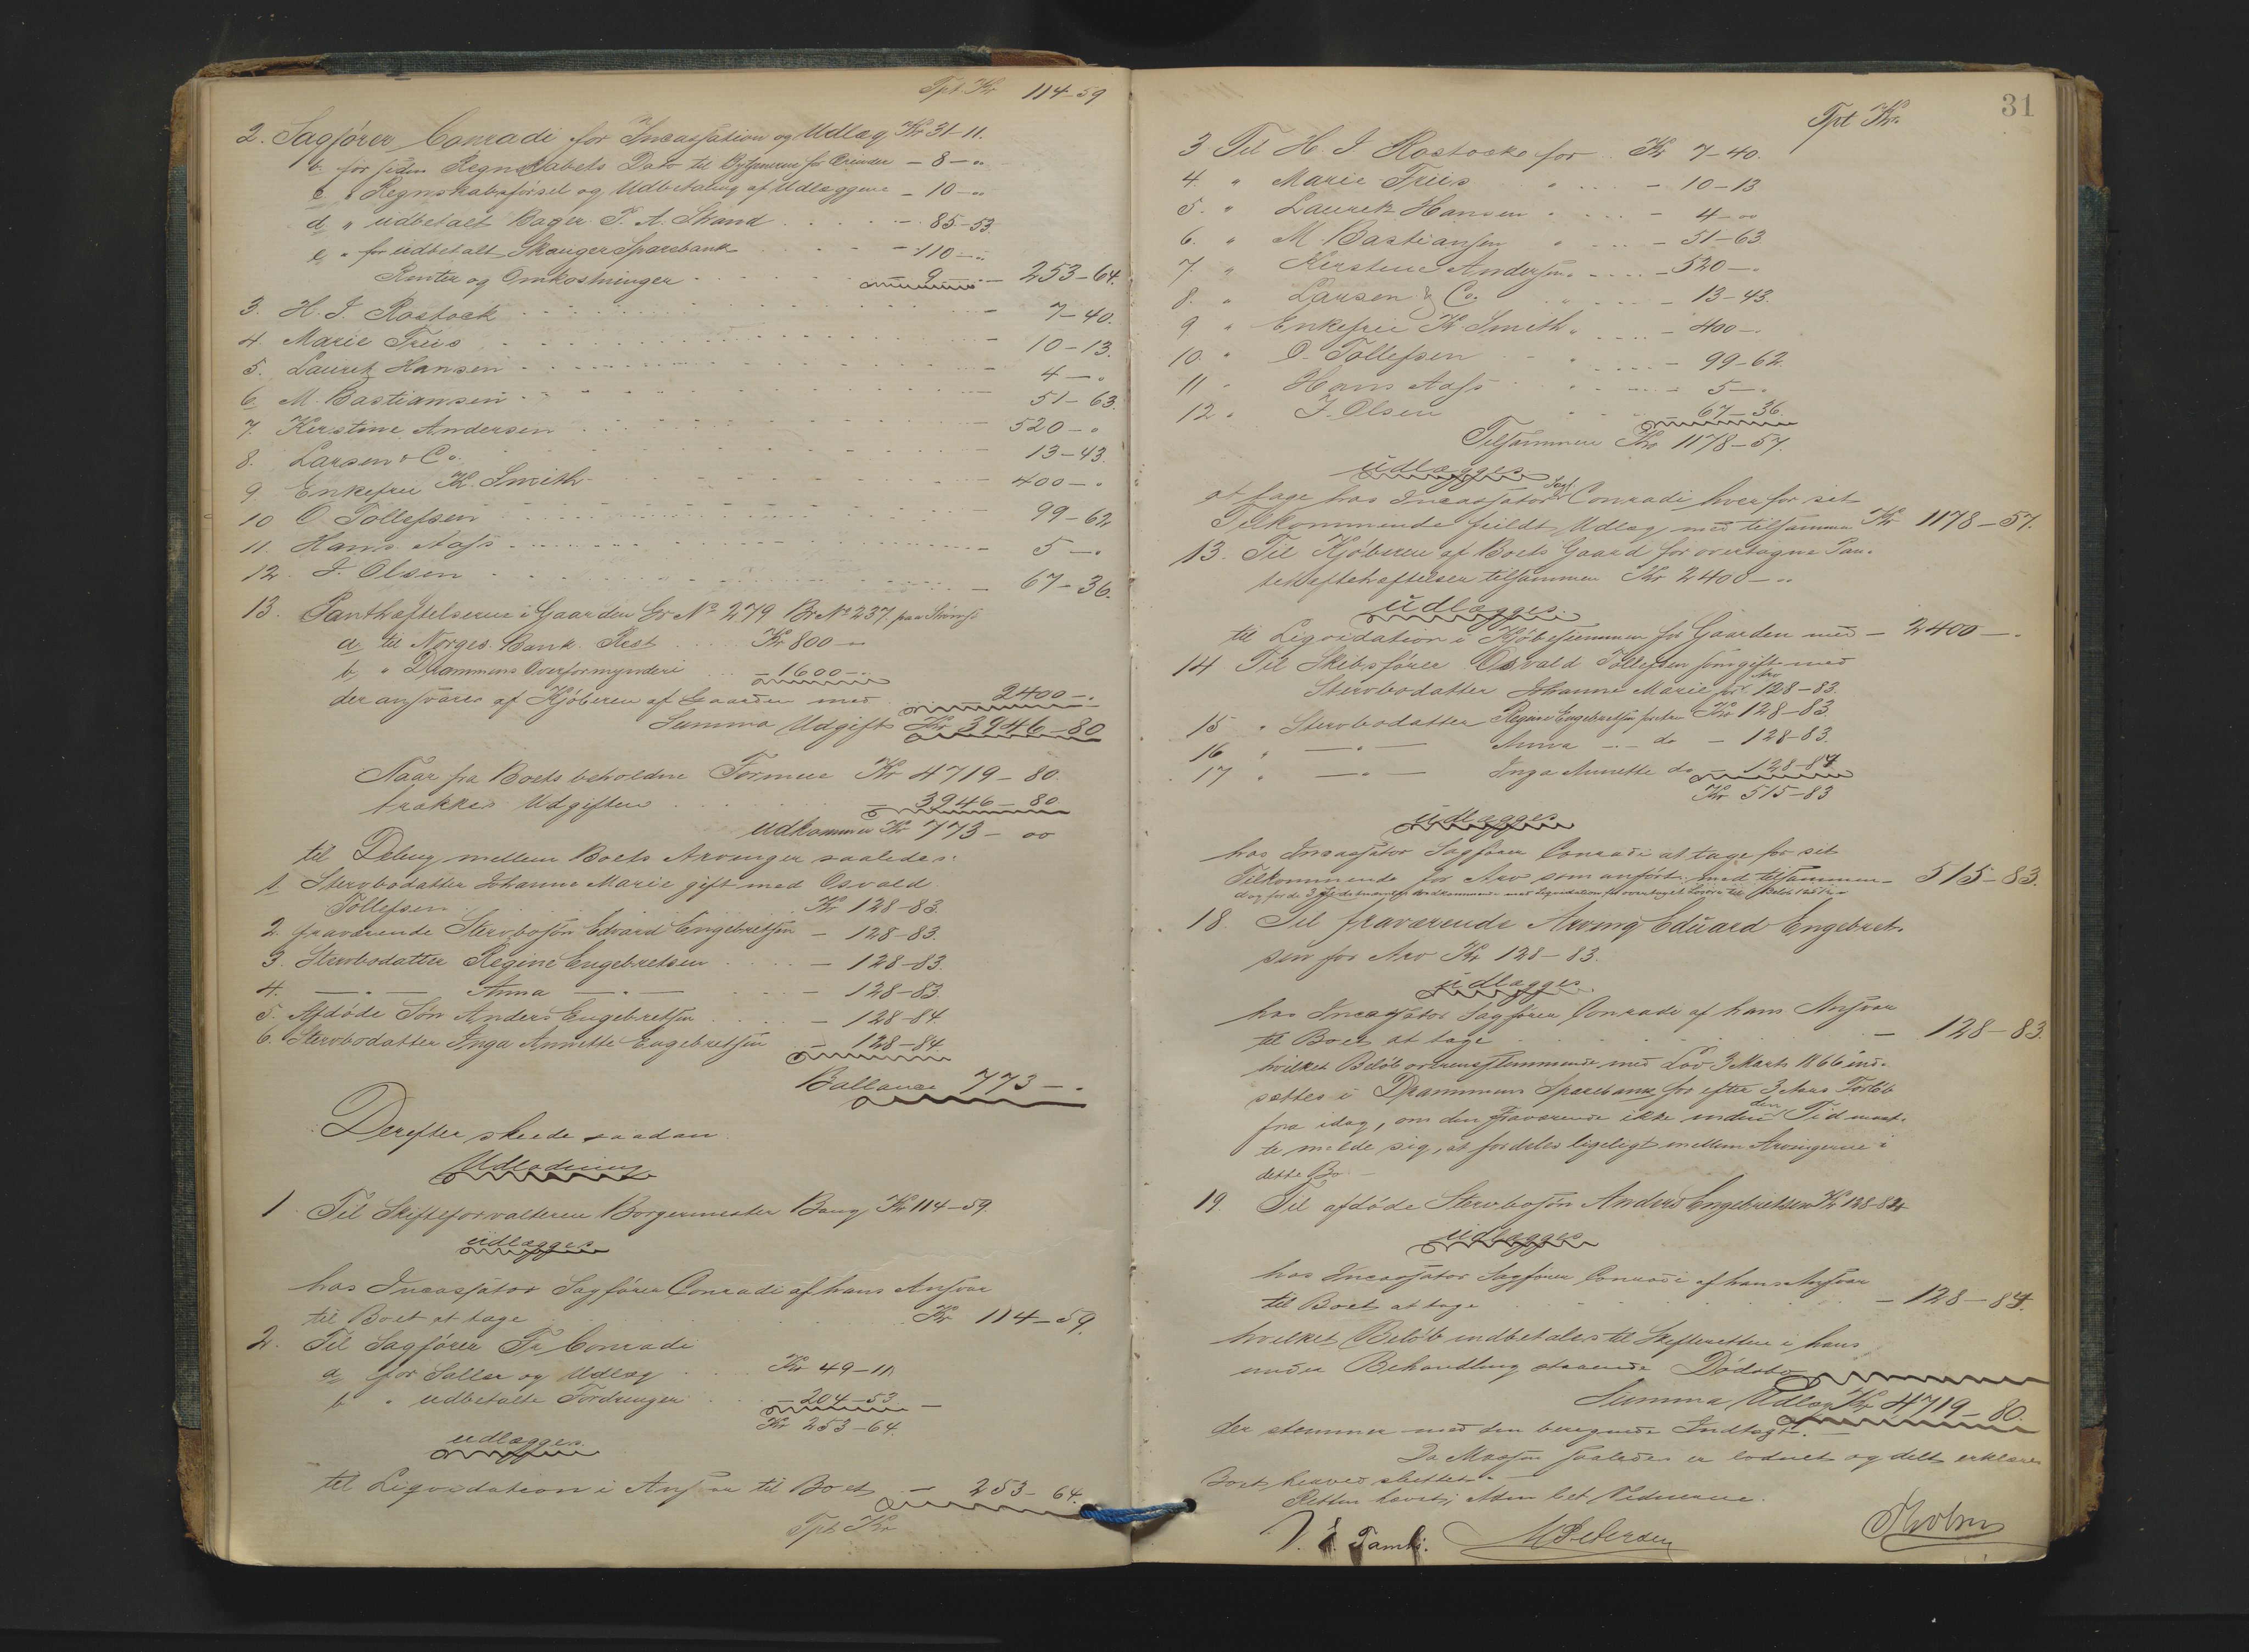 Tpt. Kr 114-59
2. Sagfører Conradi for Incassation og Udlæg Kr 31-11.
b for siden Regnskabets Dato til for Ærender - 8-"
c " Regnskabsførsel og Udbetaling af Udlæggene - 10-"
d " udbetalt Bager P. A. Strand - 85-53
e " for udbetalt Skauger Sparebank - 110-"
Renter og Omkostninger - 9-" - 253-64.
3. H. J. Rostock - 7-40.
4 Marie Friis - 10-13.
5. Lauritz Hansen - 4-"
6. M. Bastiansen - 51-63.
7. Kerstine Andersen 520-"
8. Larsen & Co. 13-43.
9. Enkefru K. Smith - 400-"
10 O. Tollefsen 99-62
11. Hans Aass - 5-"
12. J. Olsen - 67-36.
13. Panthæftelserne i Gaarden Gr No 279 Br No 237. paa Strømsø
a, til Norges Bank Rest Kr 800-"
b, " Drammens Overformynderi - 1600-"
der ansvares af Kjøberen af Gaarden med 2400-"
Summa Udgift Kr 3946-80
Naar fra Boets beholdne Formue Kr 4719-80.
trækkes Udgiften - 3946-80.
udkommer Kr 773-00
til Deling mellem Boets Arvinger saaledes:
1. Stervbodatter Johanne Marie gift med Osvald
Tollefsen Kr 128-83.
2. fraværende Stervbosøn Edvard Engebretsen - 128-83.
3. Stervbodatter Regine Engebretsen - 128-83.
4. -"- Anna -"- - 128-83
5. Afdøde Søn Anders Engebretsen - 128-84.
6. Stervbodatter Inga Annette Engebretsen - 128-84
Ballance 773-"
Derefter skeede saadan
Udlodning
1. Til Skifteforvalteren Borgermester Bang Kr 114-59.
udlægges
hos Incassator Sagfører Conradi af hans Ansvar
til Boet at tage Kr 114-59.
2. Til Sagfører Fr Conradi
a, for Sallær og Udlæg Kr 49-11
b " udbetalte Fordringer - 204-53
Kr 253-64
udlægges
til Liqvidation i Ansvar til Boet - 253-64.
Tpt. Kr
31
Tpt Kr.
3 Til H. J. Rostocke for Kr 7-40.
4. " Marie Friis " - 10-13
5. " Lauritz Hansen " - 4-00
6. " M Bastiansen " - 51-63.
7. " Kerstine Andersen " - 520-"
8. " Larsen & Co. " - 13-43.
9 " Enkefru K. Smith " - 400-"
10. " O. Tollefsen " - 99-62.
11 " Hans Aass " - 5-"
12 " J. Olsen " - 67-36.
Tilsammen Kr 1178-57.
udlægges
at tage hos Incassator Sagf. Conradi hver for sit
Tilkommende fuldt Udlæg med tilsammen Kr 1178-57.
13. Til Kjøberen af Boets Gaard for overtagne Pan-
tehæftelser tilsammen Kr 2400-"
udlægges
til Liqvidation i Kjøbesummen for Gaarden med - 2400-"
14 Til Skibsfører Osvald Tollefsen som gift med
Stervbodatter Johanne Marie for Arv 128-83.
15 " Stervbodatter Regine Engebretsen for Kr 128-83.
16 " -"- Anna -"- do - 128-83.
17 " -"- Inga Annette do - 128-84
Kr 515-83
udlægges
hos Incassator Sagfører Conradi at tage for sit
Tilkommende for Arv som anført med tilsammen - 515-83.
18. Til fraværende Arving Eduard Engebret-
sen for Arv Kr 128-83.
udlægges
hos Incassator Sagfører Conradi af hans Ansvar
til Boet at tage - 128-83.
hvilket Beløb overensstemmende med Lov 3 Marts 1866 ind-
sættes i Drammens Sparebank for efter 3 Aars Forløb
fra idag, om den Fraværende ikke inden den Tid maat-
te melde sig, at fordeles ligeligt mellem Arvingerne i
dette Bo.-
19. Til afdøde Stervbosøn Anders Engebretsen Kr 128-84
udlægges
hos Incassator Sagfører Conradi af hans Ansvar
til Boet at tage - 128-84.
hvilket Beløb indbetales til Skifteretten i hans
under Behandling staaende Dødsbo
Summa Udlæg Kr 4719-80.
der stemmer med den beregnede Indtægt.-
Da Massen saaledes er lodnet og delt erklæres
Boet herved sluttet.-
Retten hævet; Aden let Vidnerne.
M Petersen